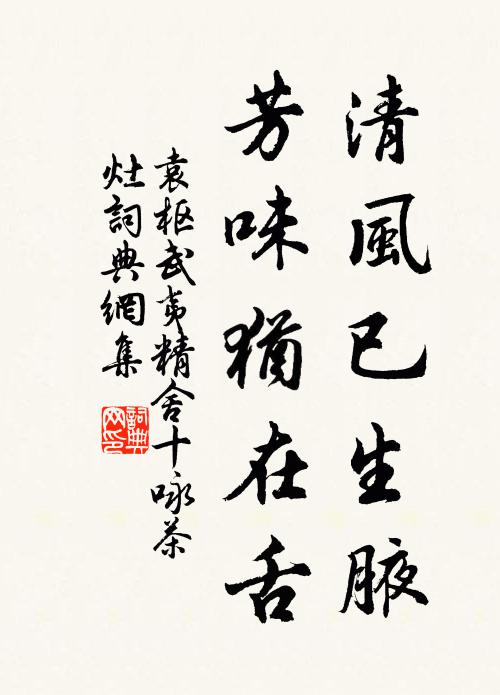 清風已生腋
芳味猶在舌
袁枢武夷精舍十咏茶
灶詞典網集
詞典网印